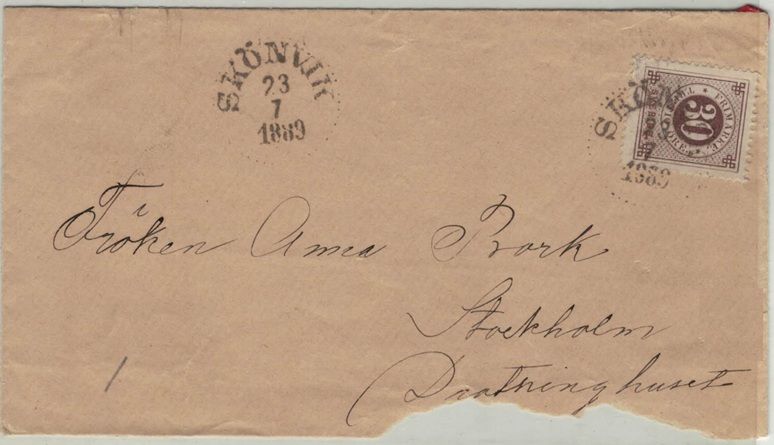 SKÖNVIK
23
7
1889
SKÖN
23
7
1889
FRIMÄRKE
TRETTIO ÖRE
30
Fröken Anna
Stockholm
Drottninghuset
1